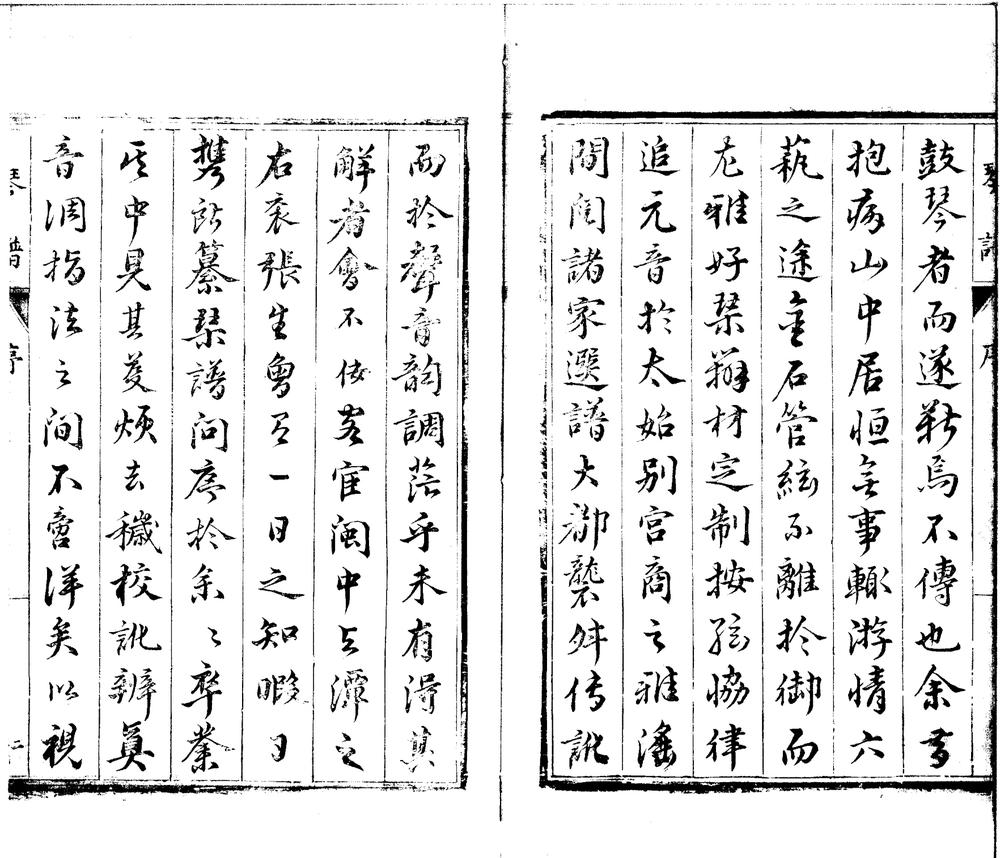 鼓琴者而遂斬焉不傳也余昔
抱病山中居恒無事輒游情六
蓺之途金石管絃不離於御而
尤雅好琹辨材定制按絃協律
追元音於太始別宮商之雅滛
間閱諸家選譜大都襲舛傳訛
而於聲音韵調茫乎未有得其
解者會不佞客宦閩中与潭之
右袞張生曾有一日之知暇日
携所纂琹譜问序於余〻卒業
其中見其芟煩去穢校訛辨眞
音调指法之间不啻详矣以視
琴譜 序
琴譜 序 二